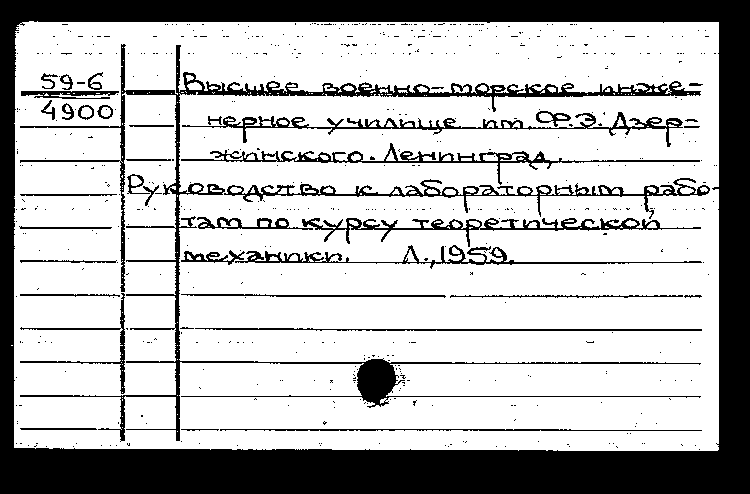 59-6
4900
Высшее военно-морское инже-
нерное училище им. Ф.Э. Дзер-
жинского. Ленинград.
Руководство к лабораторным рабо-
там по курсу теоретической
механики. Л., 1959.